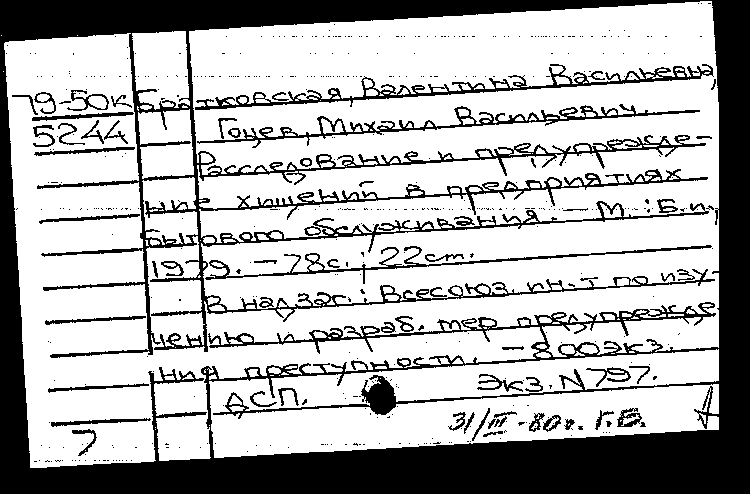 79-50к Братковская, Валентина Васильевна,
5244 Гоцев, Михаил Васильевич.
Расследование и предупрежде-
ние хищений в предприятиях
бытового обслуживания. – М. : Б.и.,
1979. – 78с. ; 22cm.
В надзаг.: Всесоюз. ин-т по изу-
чению и разраб. мер предупрежде
ния преступности. – 800экз.
ДСП. Экз. N 797.
31/III-80г. Г.Б.